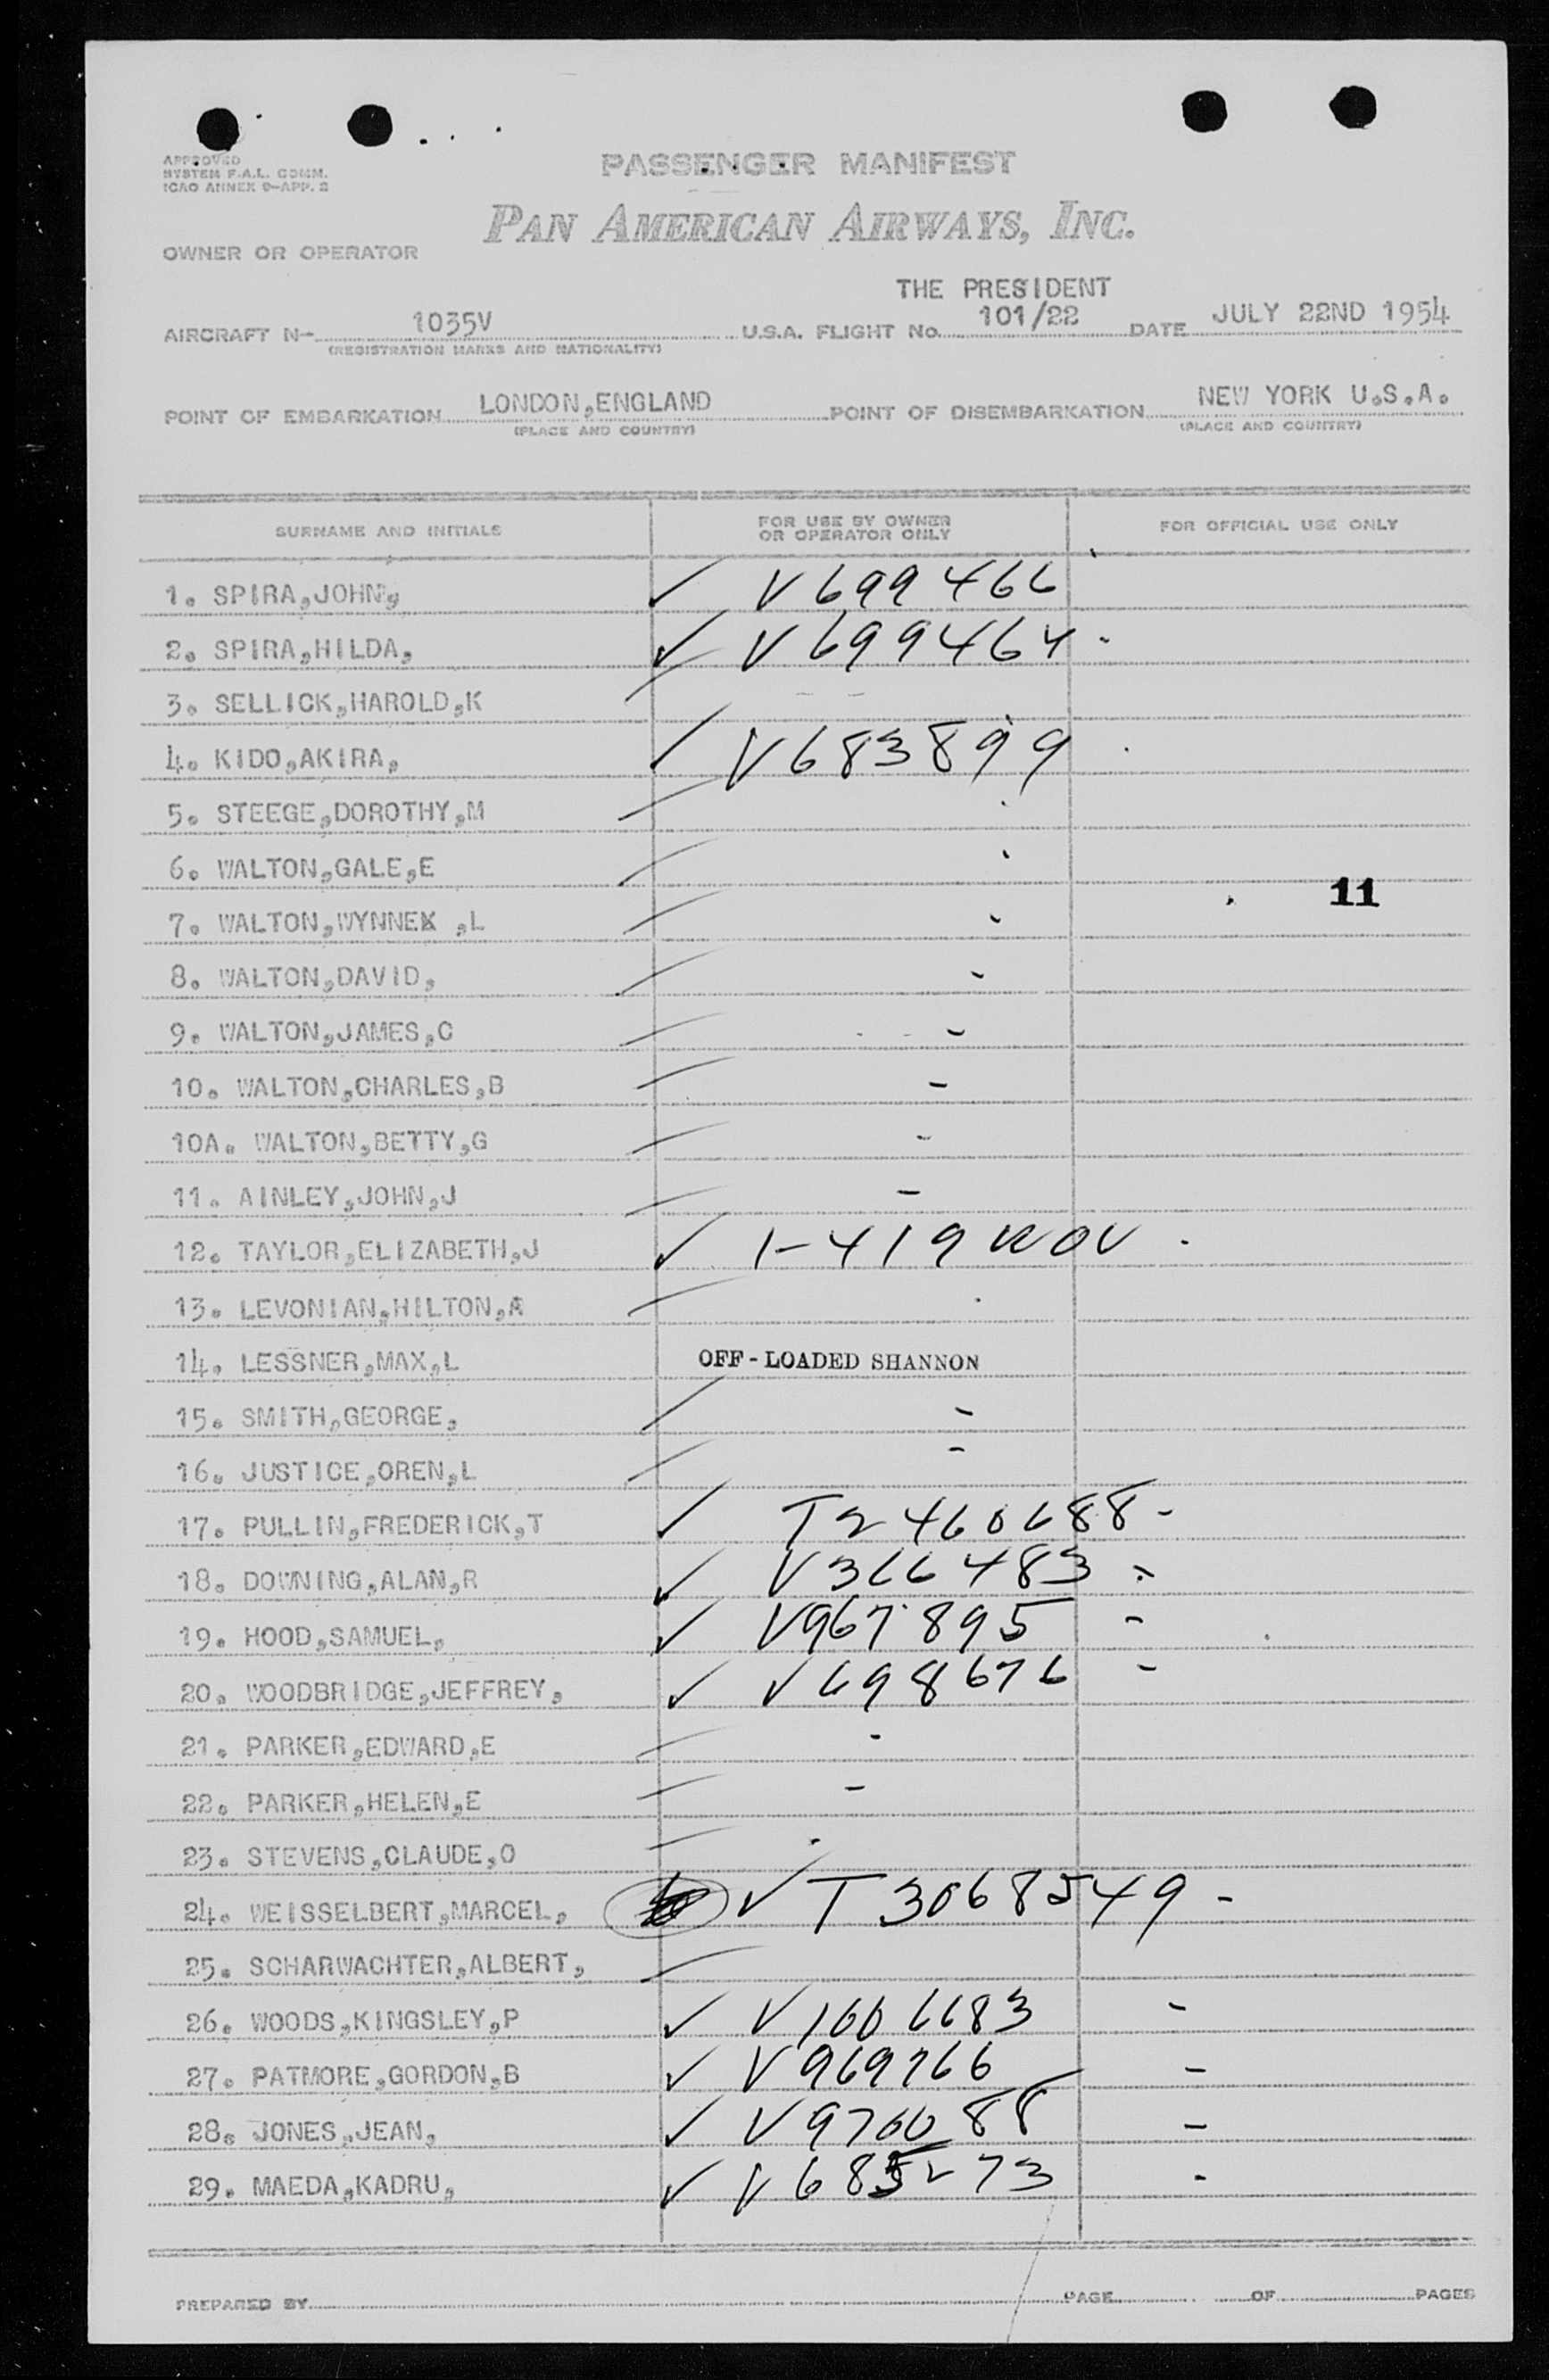 APPROVED
SYSTEM F.A.L. COMM.
ICAO ANNEX 9-APP. 2
PASSENGER MANIFEST
PAN AMERICAN AIRWAYS, INC.
OWNER OR OPERATOR
THE PRESIDENT
AIRCRAFT N- 1035V U.S.A. FLIGHT No. 101/22 DATE JULY 22ND 1954
(REGISTRATION MARKS AND NATIONALITY)
POINT OF EMBARKATION LONDON,ENGLAND POINT OF DISEMBARKATION NEW YORK U.S.A.
(PLACE AND COUNTRY) (PLACE AND COUNTRY)
SURNAME AND INITIALS FOR USE BY OWNER OR OPERATOR ONLY FOR OFFICIAL USE ONLY
1. SPIRA,JOHN, ✓ V699466
2. SPIRA,HILDA, ✓ V699464 -
3. SELLICK,HAROLD,K / - -
4. KIDO,AKIRA, ✓ V683899
5. STEEGE,DOROTHY,M /
6. WALTON,GALE,E /
11
7. WALTON,WYNNEX ,L / -
8. WALTON,DAVID, / -
9. WALTON,JAMES,C / -
10. WALTON,CHARLES,B / -
10A. WALTON,BETTY,G / -
11. AINLEY,JOHN,J / -
12. TAYLOR,ELIZABETH,J ✓ 1-419 NOV -
13. LEVONIAN,HILTON,A /
14. LESSNER,MAX,L OFF-LOADED SHANNON
15. SMITH,GEORGE, / -
16. JUSTICE,OREN,L / -
17. PULLIN,FREDERICK,T ✓ T2460688 -
18. DOWNING,ALAN,R ✓ V366483 -
19. HOOD,SAMUEL, ✓ V967895 -
20. WOODBRIDGE,JEFFREY, ✓ V698676 -
21. PARKER,EDWARD,E / -
22. PARKER,HELEN,E / -
23. STEVENS,CLAUDE,O / -
24. WEISSELBERT,MARCEL, ✓ T3068549 -
25. SCHARWACHTER,ALBERT, /
26. WOODS,KINGSLEY,P ✓ V1606683 -
27. PATMORE,GORDON,B ✓ V969766 -
28. JONES,JEAN, ✓ V976088 -
29. MAEDA,KADRU, ✓ V685273 -
PREPARED BY PAGE OF PAGES